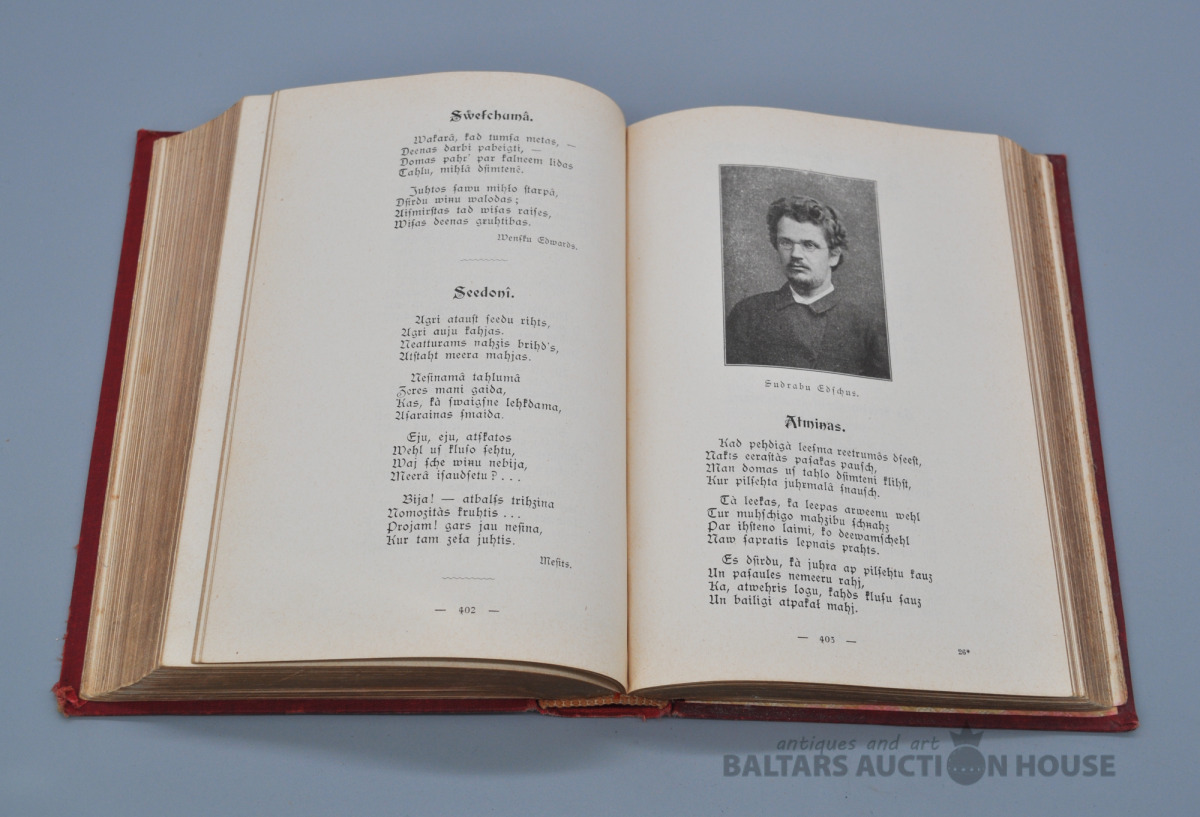 Swefchumâ.
Wakarâ, kad tumſa metas, —
Deenas darbi pabeigti, —
Domas pahr' par kalneem lidas
Tahlu, mihlâ dſimtenê.
Juhtos ſawu mihło ſtarpâ,
Dſirdu wiņu walodas;
Aiſmirſtas tad wiſas raiſes,
Wiſas deenas gruhtibas.
Wenſku Edwards.
Seedonî.
Agri atauſt ſeedu rihts,
Agri auju kahjas.
Neatturams nahzis brihd's,
Atſtaht meera mahjas.
Neſinamâ tahlumâ
Zeres mani gaida,
Kas, kà ſwaigſne lehkdama,
Aſarainas ſmaida.
Eju, eju, atſkatos
Wehl uſ kluſo ſehtu,
Waj ſche wiņu nebija,
Meerâ iſaudſetu? . . .
Bija! — atbalſs trihzina
Nomozitàs kruhtis . . .
Projam! gars jau neſina,
Kur tam zeļa juhtis.
Meſits.
— 402 —
Sudrabu Edſchus.
Atmiņas.
Kad pehdigà leeſma reetrumôs dſeeſt,
Nakts eeraſtàs paſakas pauſch,
Man domas uſ tahlo dſimteni klihſt,
Kur pilſehta juhrmalâ ſnauſch.
Tà leekas, ka leepas arweenu wehl
Tur muhſchigo mahzibu ſchņahz
Par ihſteno laimi, ko deewamſchehl
Naw ſapratis lepnais prahts.
Es dſirdu, kà juhra ap pilſehtu kauz
Un paſaules nemeeru rahj,
Ka, atwehris logu, kahds kluſu ſauz
Un bailigi atpakał mahj.
— 403 —
26*
antiques and art
BALTARS AUCTION HOUSE